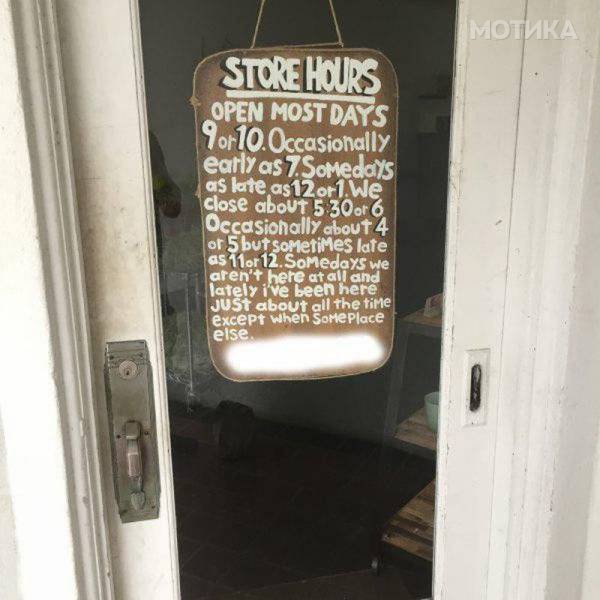 МОТИКА
STORE HOURS
OPEN MOST DAYS
9 or 10. Occasionally
early as 7. SoMedays
as late as 12 or 1. We
close about 5:30 or 6
Occasionally about 4
or 5 but sometiMes late
as 11 or 12. SoMedays we
aren't here at all and
lately i've been here
JUSt about all the time
except when SoMePlace
else.